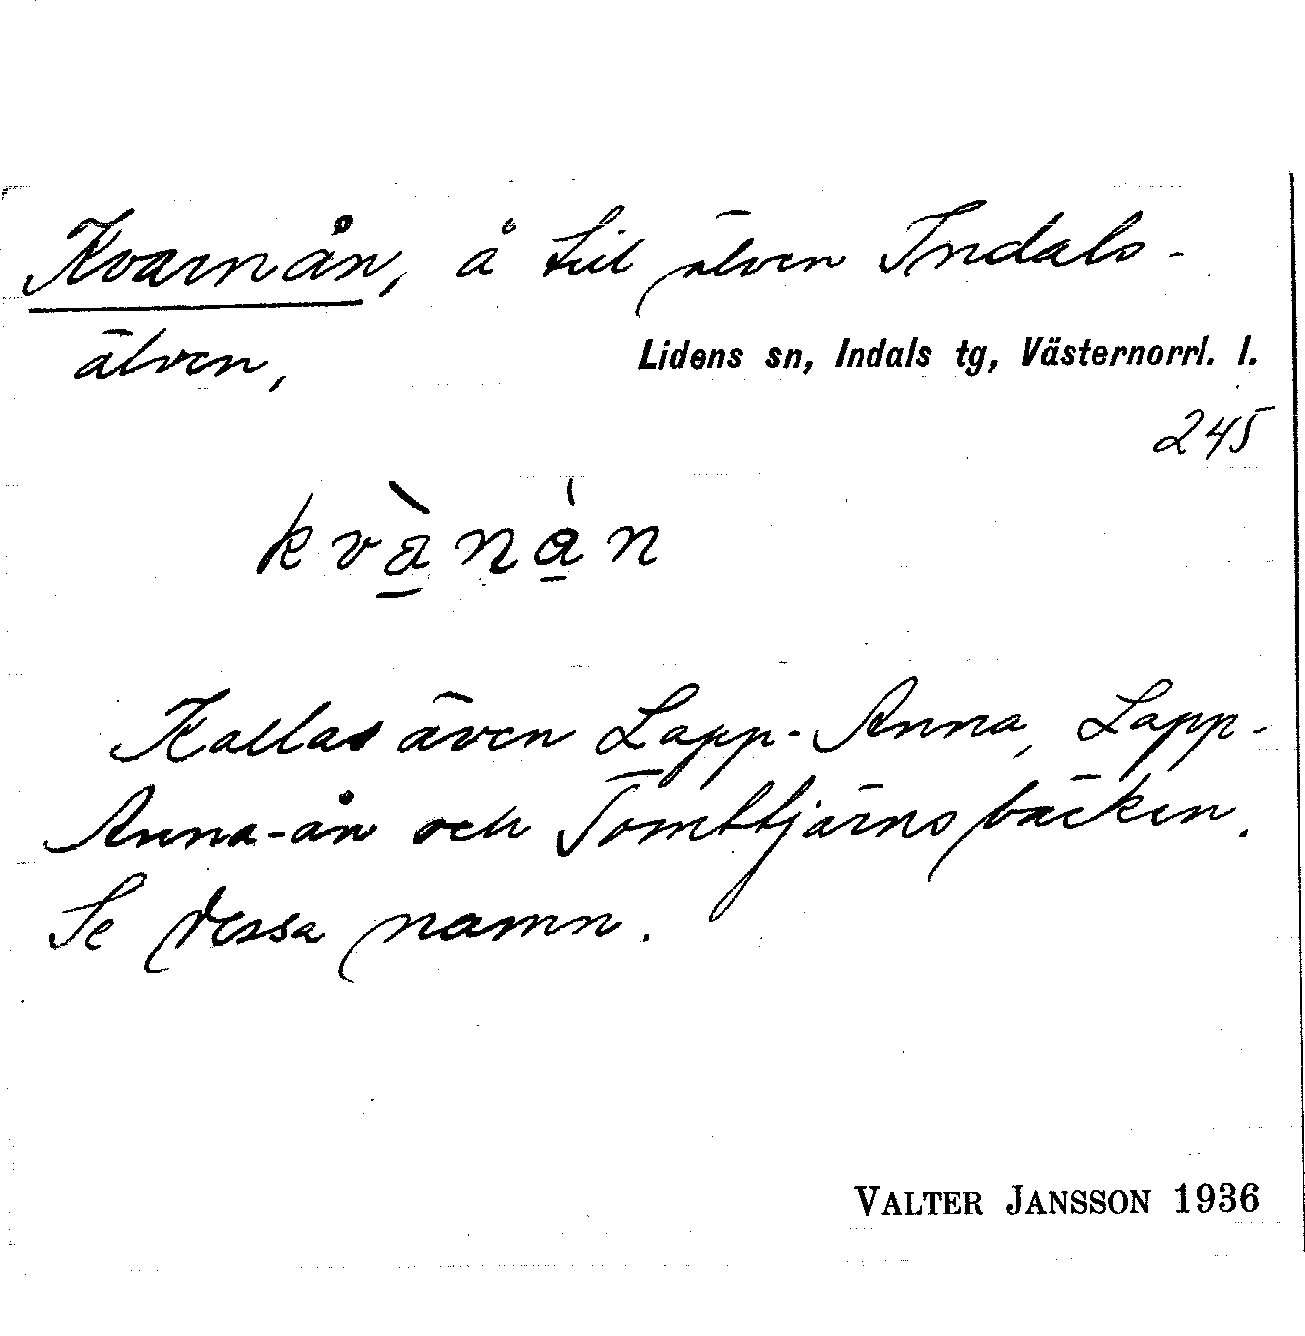 Kvarnån, å till älven Indals-
älven,
Lidens sn, Indals tg, Västernorrl. l.
245
kvànán
Kallas även Lapp-Anna, Lapp-
Anna-ån och Tomttjärnsbäcken.
Se dessa namn.
VALTER JANSSON 1936